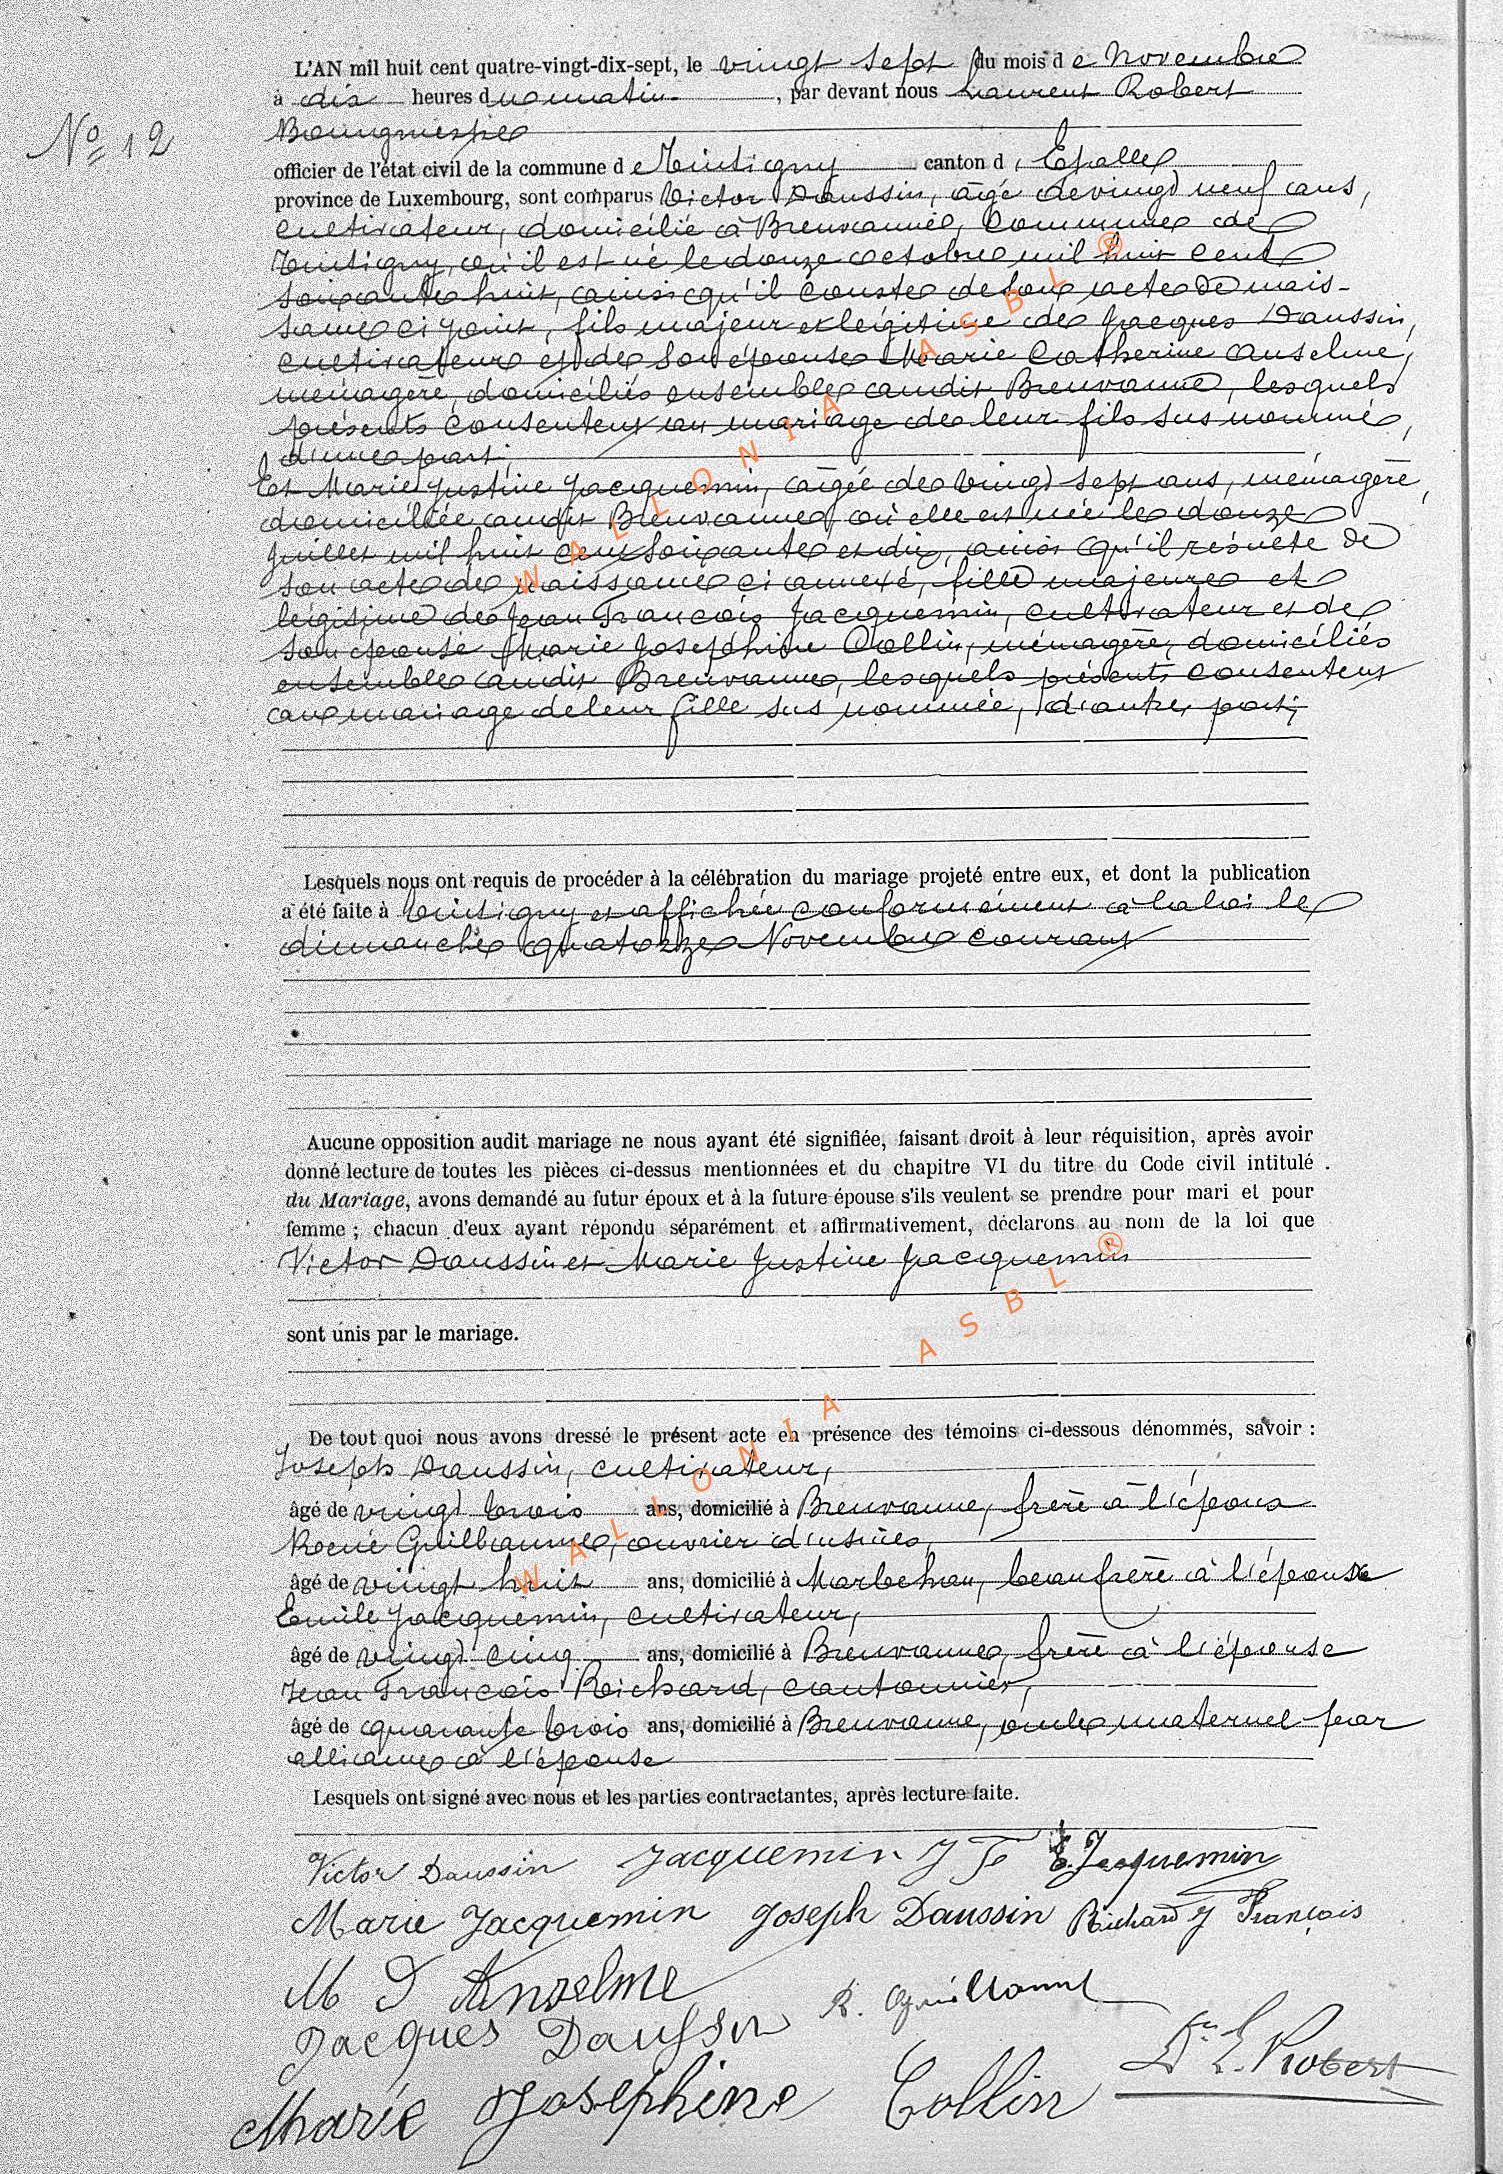 L'AN mil huit cent quatre-vingt-dix-sept, le vingt sept du mois de Novembre
à dix heures du matin, par devant nous Laurent Robert
Nº 12
Bourgmestre
officier de l'état civil de la commune de Tintigny canton d'Etalle
province de Luxembourg, sont comparus Victor Daussin, âgé de vingt neuf ans,
cultivateur, domicilié à Breuvanne, commune de
Tintigny, où il est né le douze octobre mil huit cent
soixante huit, ainsi qu'il conste de son acte de nais-
sance ci joint, fils majeur et légitime de Jacques Daussin,
cultivateur et de son épouse Marie Catherine Anselme,
ménagère, domiciliés ensemble audit Breuvanne, lesquels
présents consentent au mariage de leur fils sus nommé,
d'une part;
Et Marie Justine Jacquemin, âgée de vingt sept ans, ménagère,
domiciliée audit Breuvanne, où elle est née le douze
Juillet mil huit cent soixante et dix, ainsi qu'il résulte de
son acte de naissance ci annexé, fille majeure et
légitime de Jean François Jacquemin, cultivateur et de
son épouse Marie Joséphine Collin, ménagère, domiciliés
ensemble audit Breuvanne, lesquels présents consentent
au mariage de leur fille sus nommée, d'autre part;
Lesquels nous ont requis de procéder à la célébration du mariage projeté entre eux, et dont la publication
a été faite à Tintigny et affichée conformément à la loi le
dimanche quatorze Novembre courant
Aucune opposition audit mariage ne nous ayant été signifiée, faisant droit à leur réquisition, après avoir
donné lecture de toutes les pièces ci-dessus mentionnées et du chapitre VI du titre du Code civil intitulé
du Mariage, avons demandé au futur époux et à la future épouse s'ils veulent se prendre pour mari et pour
femme ; chacun d'eux ayant répondu séparément et affirmativement, déclarons au nom de la loi que
Victor Daussin et Marie Justine Jacquemin
sont unis par le mariage.
De tout quoi nous avons dressé le présent acte en présence des témoins ci-dessous dénommés, savoir :
Joseph Daussin, cultivateur,
âgé de vingt trois ans, domicilié à Breuvanne, frère à l'époux
René Guillaume, ouvrier d'usines,
âgé de vingt huit ans, domicilié à Marbehan, beau frère à l'épouse
Emile Jacquemin, cultivateur,
âgé de vingt cinq ans, domicilié à Breuvanne, frère à l'épouse
Jean François Richard, cantonnier,
âgé de quarante trois ans, domicilié à Breuvanne, oncle maternel par
alliance à l'épouse
Lesquels ont signé avec nous et les parties contractantes, après lecture faite.
Victor Daussin Jacquemin J F E. Jacquemin
Marie Jacquemin Joseph Daussin Richard J François
M Anselme
R. Guillaume
Jacques Daussin
L. Robert
Marie Josephine Collin
WALLONIA ASBL ®
WALLONIA ASBL ®